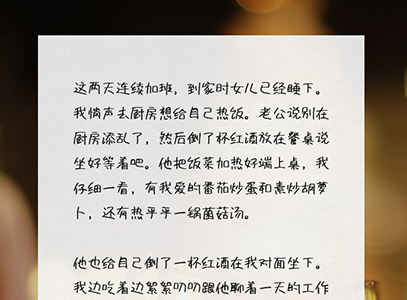 这两天连续加班，到家时女儿已经睡下。
我悄声去厨房想给自己热饭。老公说别在
厨房添乱了，然后倒了杯红酒放在餐桌说
坐好等着吧。他把饭菜加热好端上桌，我
仔细一看，有我爱的番茄炒蛋和素炒胡萝
卜，还有热乎乎一锅菌菇汤。
他也给自己倒了一杯红酒在我对面坐下。
我边吃着边絮絮叨叨跟他聊着一天的工作